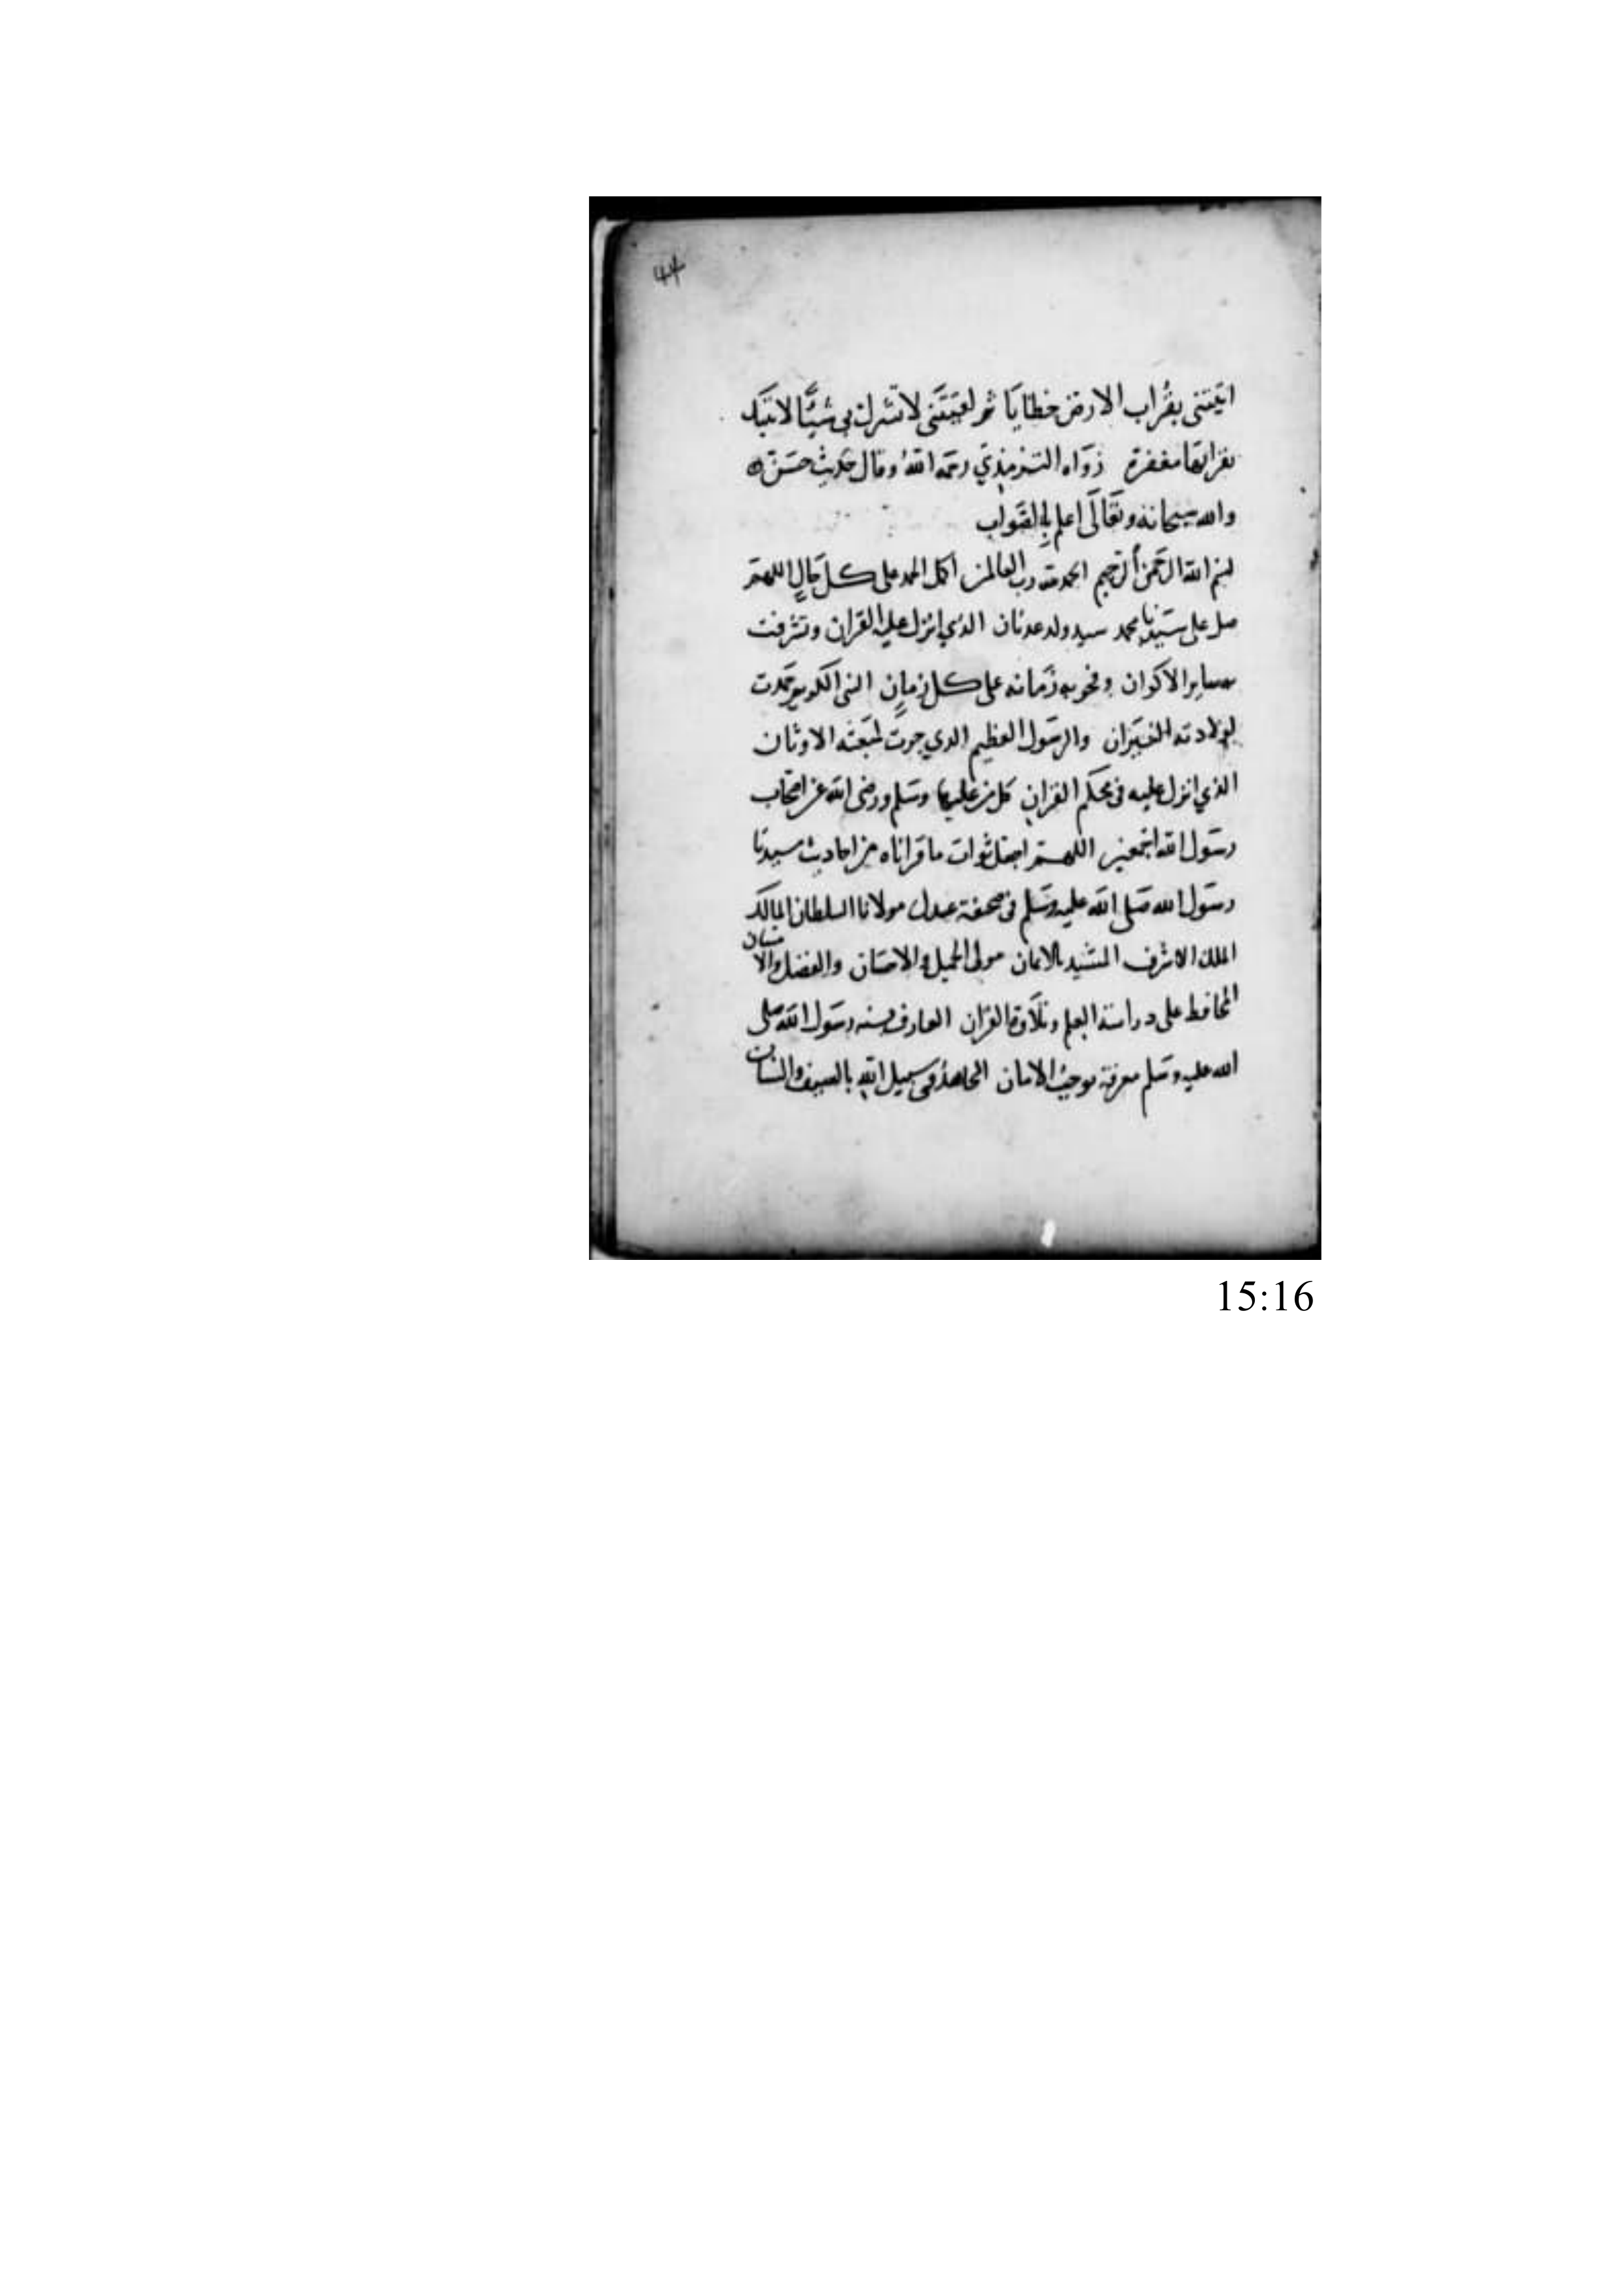 ٤٤
اتيتنى بقُراب الارض خطايَا ثم لقيتَنى لا تشرك بى شيئًا لاتيتك
بقرابها مغفرة رَوَاه الترمذي رحمَه اللهُ وقال حَدِيث حسَن
والله سبحانه وتعَالَى اعلم بِالصَواب
بسم الله الرَحمن الرَحيم الحمد لله رب العالمين اكمل الحمد على كل حَالٍ اللهمَّ
صل على سَيدنا محمد سيد ولد عدنان الذي انزل عليه القران وتشرفت
به ساير الاكوان وفخر به زمَانه على كل زمانٍ النبى الكريم خمدت
لولادته النيرَان والرسَول العظيم الذي خرت لمبعَثه الاوثان
الذي انزل عليه فى محكَم القرانِ كل من عليها وسَلم ورضى الله عن اصحَاب
رسَول الله اجمعين اللهـم اجعَل ثوات ما قراناه من احاديث سيدنا
رسَول الله صَلى الله عليه وسَلم فى صحيفة عبدك مولانا السلطان المالك
الملك الاشرف المشيد بالايمان مولى الجميل والاحسَان والفضل والامتنان
المحافظ على دراسة العلم وتلاَوة القران العارف بسنه رسَول الله صَلى
الله عليه وسَلم معرفة توجبُ الامان المجاهدُ فى سبيل اللهِ بالسيف والسنان
15:16